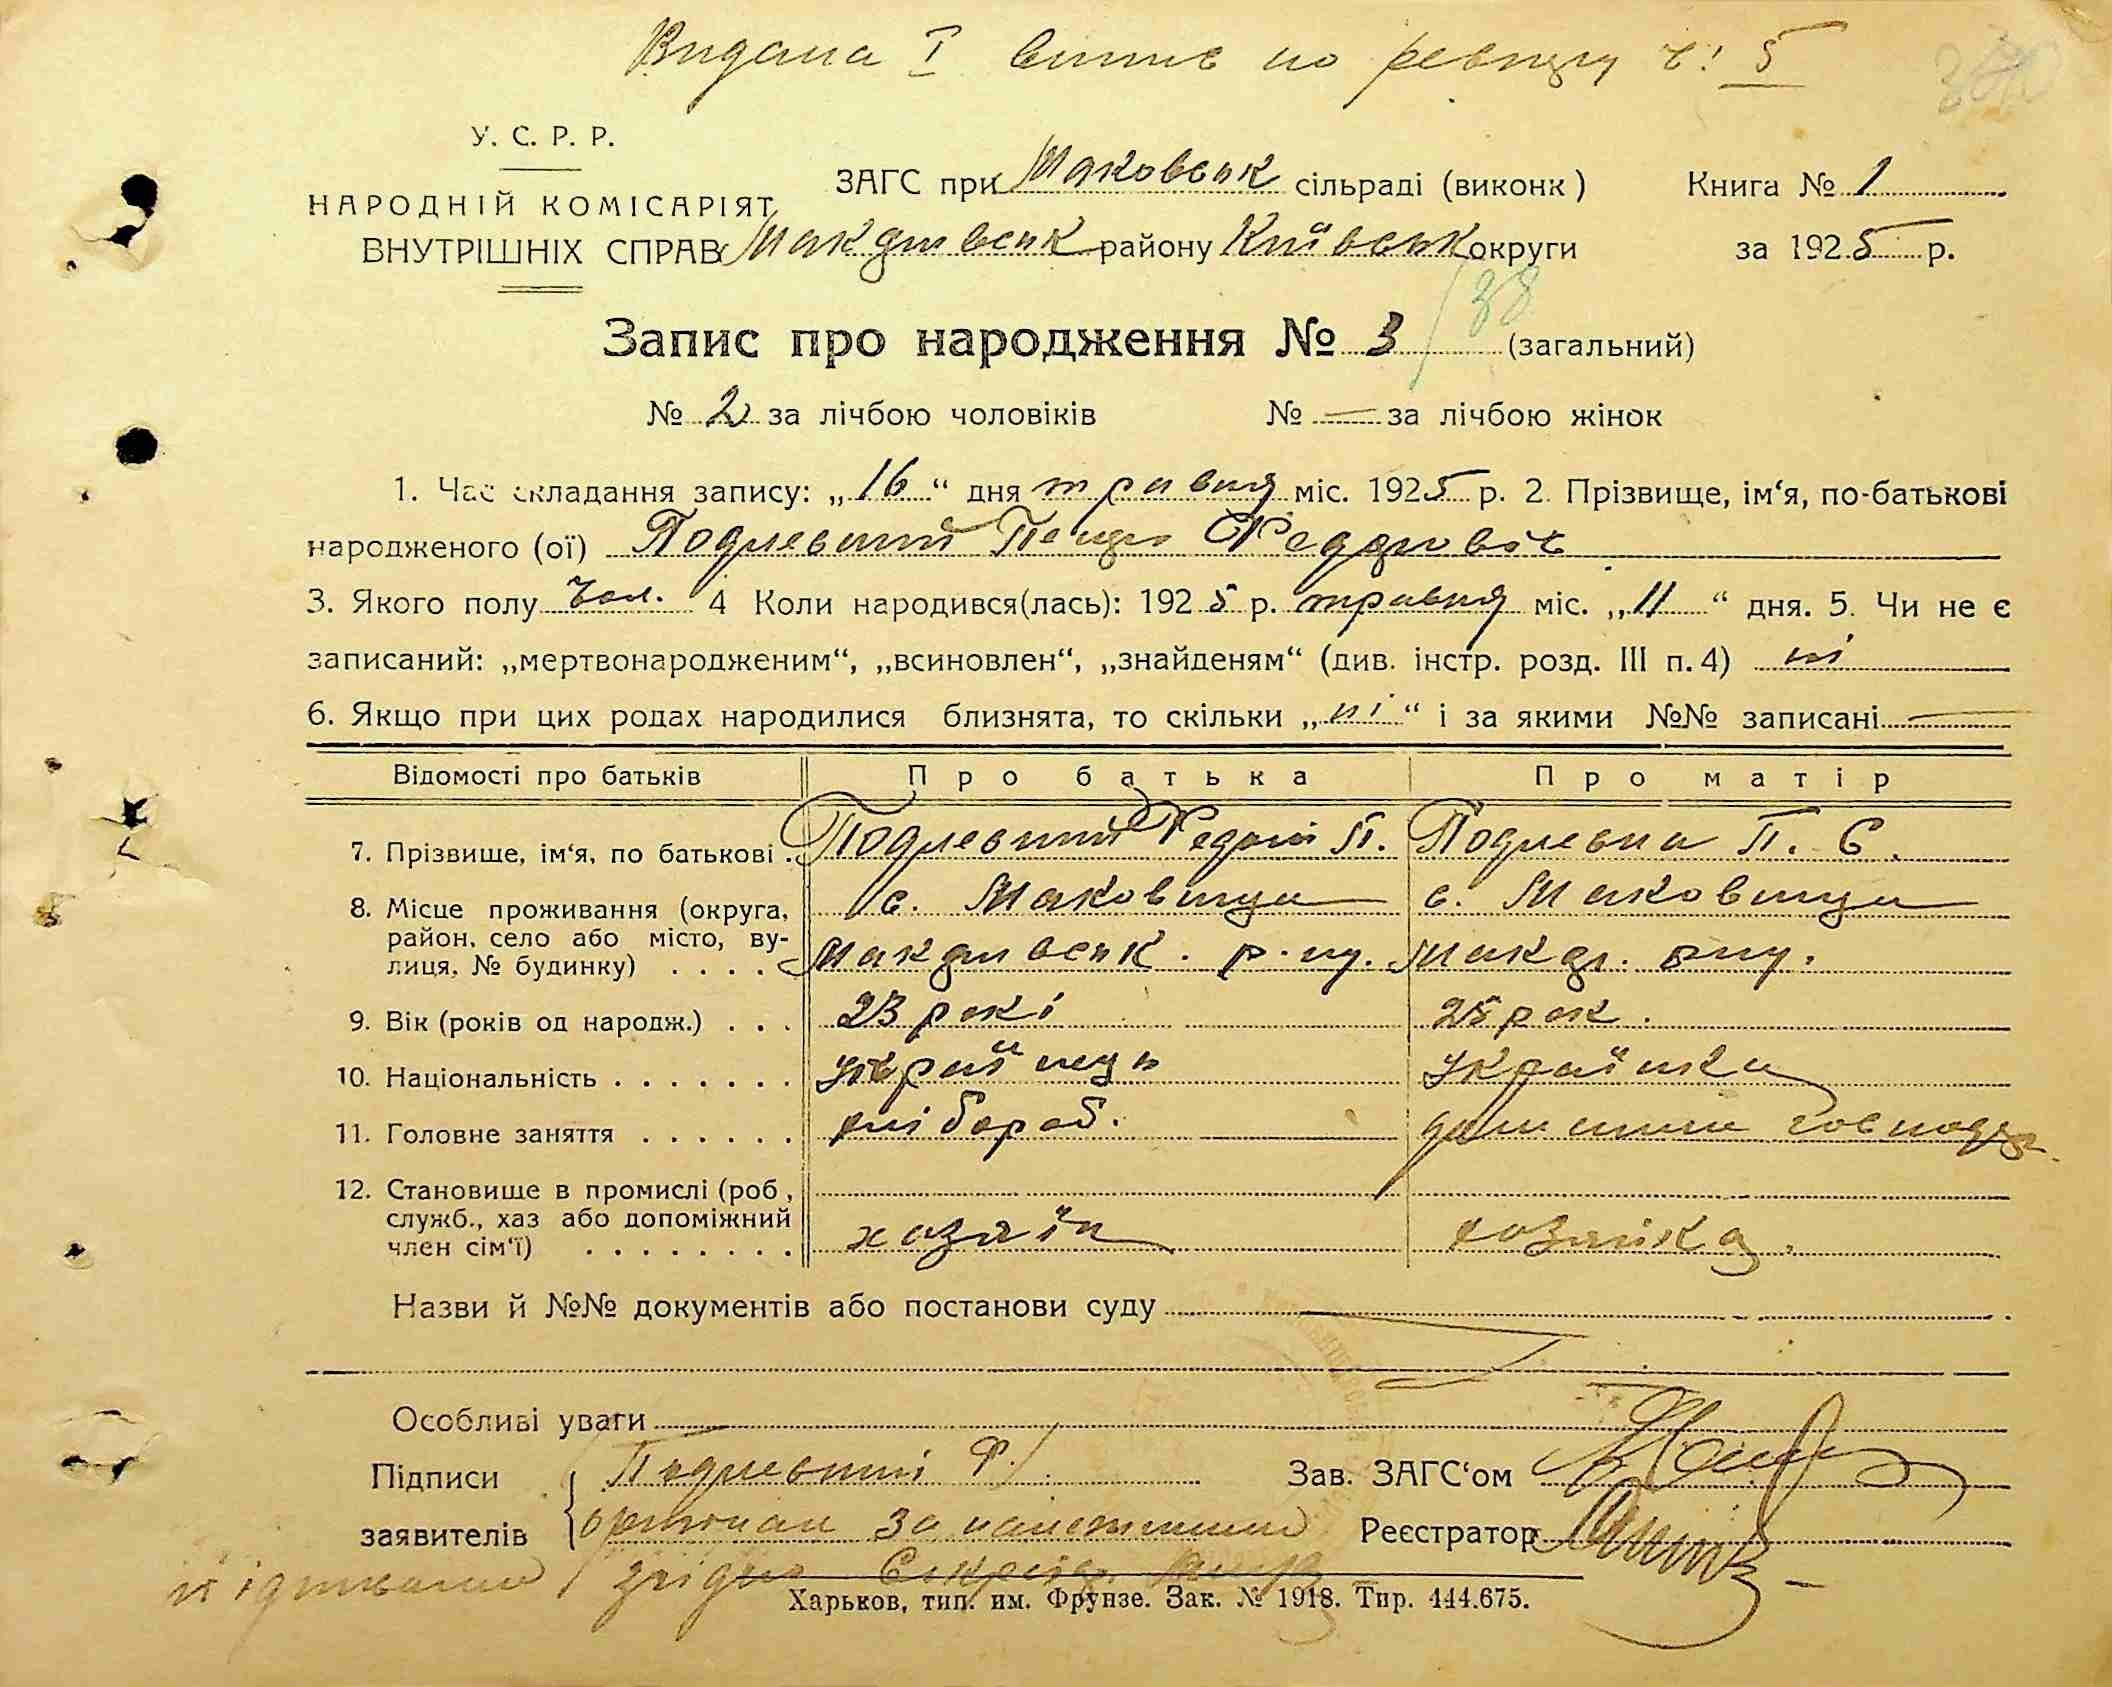 Видана I витяг по реєстру ч. 5
У. С. Р. Р.
НАРОДНІЙ КОМІСАРІЯТ
ВНУТРІШНІХ СПРАВ
ЗАГС при Маковськ сільраді (виконк)
Макарівськ району Київськ округи
Книга № 1
за 1925 р.
Запис про народження № 3/38 (загальний)
№ 2 за лічбою чоловіків № — за лічбою жінок
1. Час складання запису: „16“ дня травня міс. 1925 р. 2. Прізвище, ім‘я, по-батькові
народженого (ої) Федорович
3. Якого полу чол. 4 Коли народився(лась): 1925 р. травня міс. „11“ дня. 5. Чи не є
записаний: „мертвонародженим“, „всиновлен“, „знайденям“ (див. інстр. розд. III п. 4) ні
6. Якщо при цих родах народилися близнята, то скільки „ні“ і за якими №№ записані —
Відомості про батьків Про батька Про матір
7. Прізвище, ім‘я, по батькові . Федор П. П. Є.
8. Місце проживання (округа, с. Маковища с. Маковища
район, село або місто, ву-
лиця, № будинку) . . . . Макарівськ. р-ну. Макар. рну.
9. Вік (років од народж.) . . . 23 рокі 25 рок.
10. Національність . . . . . . . українець українка
11. Головне заняття . . . . . . хлібороб. домашнє господар.
12. Становище в промислі (роб,
служб., хаз або допоміжний
член сім‘ї) . . . . . . . . хазяїн хозяйка.
Назви й №№ документів або постанови суду
Особливі уваги
Підписи Ф. Зав. ЗАГС‘ом
заявителів Реєстратор
Харьков, тип. им. Фрунзе. Зак. № 1918. Тир. 444.675.